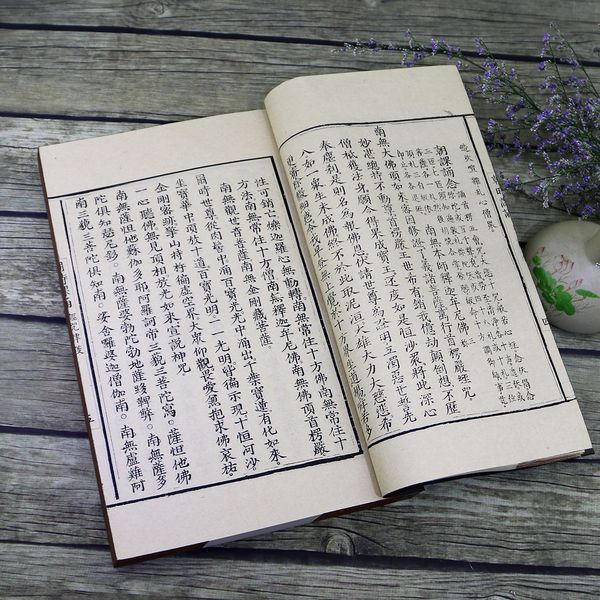 朝課誦念
南無本師釋迦牟尼佛
南無大佛頂如來密因修證了義諸菩薩萬行首楞嚴經咒
妙湛總持不動尊首楞嚴王世希有銷我億劫顛倒想不歷
僧祇獲法身願今得果成寶王還度如是恒沙眾將此深心
奉塵剎是則名為報佛恩伏請世尊為證明五濁惡世誓先
入如一眾生未成佛終不於此取泥洹大雄大力大慈悲希
更審除微細惑令我早登無上覺於十方界坐道場舜若多
性可銷亡爍迦羅心無動轉南無常住十方佛南無常住十
方法南無常住十方僧南無釋迦牟尼佛南無佛頂首楞嚴
南無觀世音菩薩南無金剛藏菩薩。
爾時世尊從肉髻中涌百寶光光中涌出千葉寶蓮有化如來。
坐寶華中頂放十道百寶光明一一光明皆徧示現十恒河沙
金剛密跡擎山持杵徧虛空界大眾仰觀畏愛兼抱求佛哀祐。
一心聽佛無見頂相放光如來宣說神咒
南無薩怛他蘇伽多耶阿羅訶帝三藐三菩陀寫。薩怛他佛
陀俱知瑟尼釤。南無薩婆勃陀勃地薩跢鞞弊。南無薩多
南三藐三菩陀俱知南。娑舍囉婆迦僧伽南。南無盧雞阿